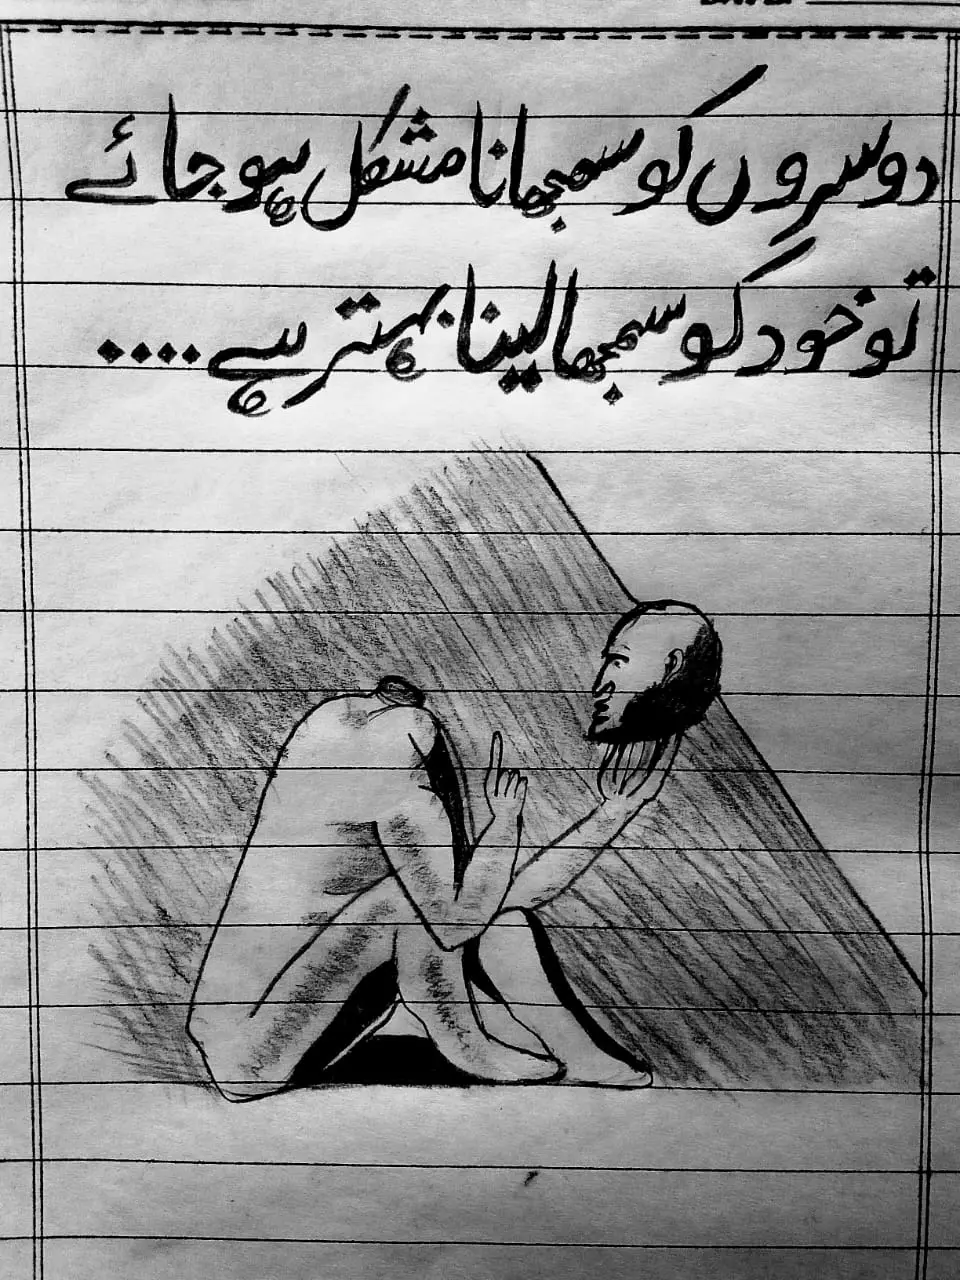 دوسروں کو سمجھانا مشکل ہو جائے
تو خود کو سمجھا لینا بہتر ہے....